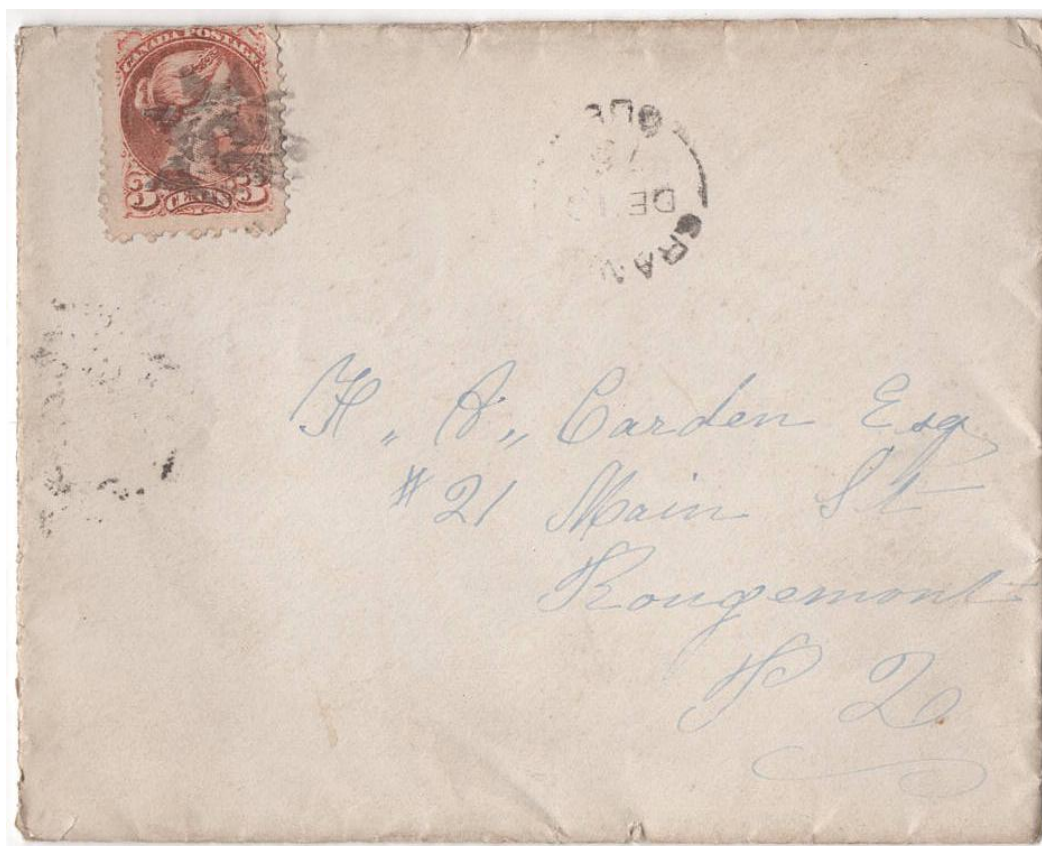 CANADA POSTAGE
3 CENTS 3
GRAN
DE 1
QUE
H. A. Carden Esq
#21 Main St
Rougemont
P Q